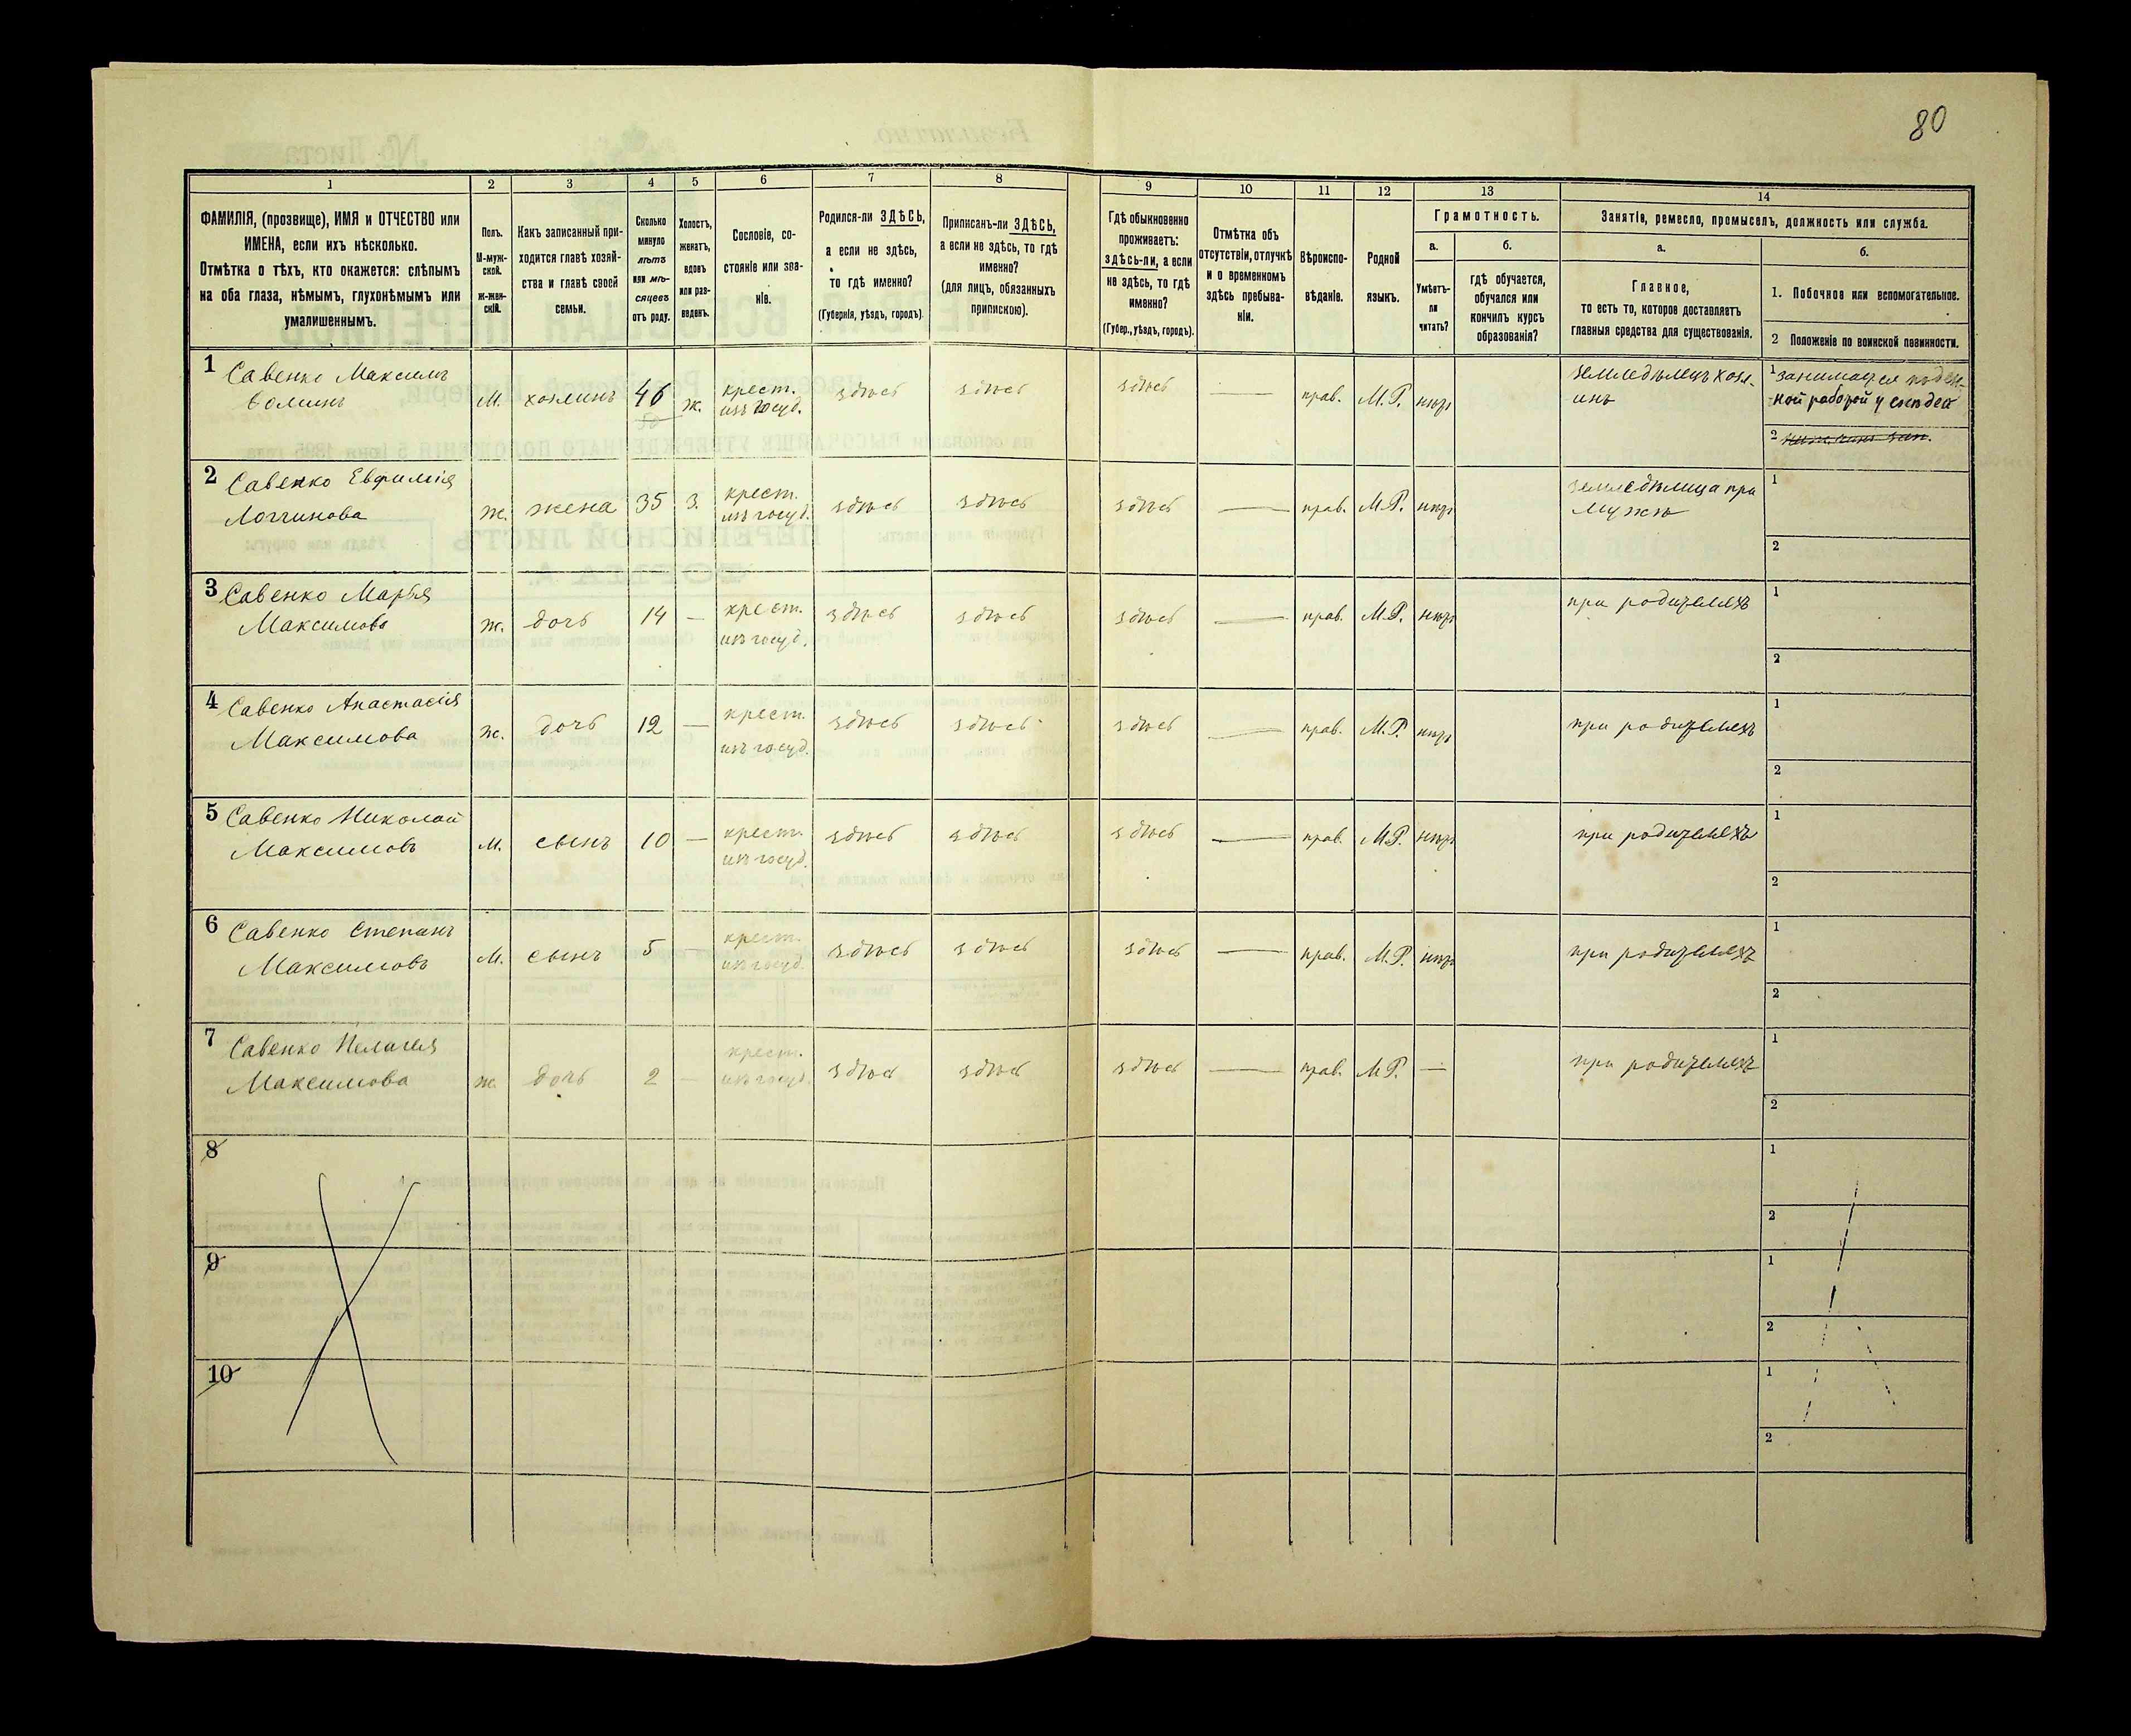 80
1 2 3 4 5 6 7 8 9 10 11 12 13 14
ФАМИЛІЯ, (прозвище), ИМЯ и ОТЧЕСТВО или
ИМЕНА, если ихъ нѣсколько.
Отмѣтка о тѣхъ, кто окажется: слѣпымъ
на оба глаза, нѣмымъ, глухонѣмымъ или
умалишеннымъ.
Полъ.
М-муж-
ской.
Ж-жен-
скій.
Какъ записанный при-
ходится главѣ хозяй-
ства и главѣ своей
семьи.
Сколько
минуло
лѣтъ
или мѣ-
сяцевъ
отъ роду.
Холостъ,
женатъ,
вдовъ
или раз-
веденъ.
Сословіе, со-
стояніе или зва-
ніе.
Родился-ли ЗДѢСЬ,
а если не здѣсь,
то гдѣ именно?
(Губернія, уѣздъ, городъ).
Приписанъ-ли ЗДѢСЬ,
а если не здѣсь, то гдѣ
именно?
(для лицъ, обязанныхъ
припискою).
Гдѣ обыкновенно
проживаетъ:
здѣсь-ли, а если
не здѣсь, то гдѣ
именно?
(Губер., уѣздъ, городъ).
Отмѣтка объ
отсутствіи, отлучкѣ
и о временномъ
здѣсь пребыва-
ніи.
Вѣроиспо-
вѣданіе.
Родной
языкъ.
Грамотность.
а.
Умѣетъ-
ли
читать?
б.
гдѣ обучается,
обучался или
кончилъ курсъ
образованія?
Занятіе, ремесло, промыселъ, должность или служба.
а.
Главное,
то есть то, которое доставляетъ
главныя средства для существованія.
б.
1. Побочное или вспомогательное.
2 Положеніе по воинской повинности.
1 Савенко Максимъ
М. хозяинъ 46 ж. крест. изъ госуд. здѣсь здѣсь здѣсь — прав. М.Р. нѣтъ земледѣлецъ хозя-
инъ
1 занимается поден-
ной работой у
50
2
2 Савенко Евфимія
Логгинова ж. жена 35 з. крест. изъ госуд. здѣсь здѣсь здѣсь — прав. М.Р. нѣтъ земледѣлица при
мужѣ
1
2
3 Савенко Марья
Максимова ж. дочь 14 — крест. изъ госуд. здѣсь здѣсь здѣсь — прав. М.Р. нѣтъ при родителяхъ
1
2
4 Савенко Анастасія
Максимова ж. дочь 12 — крест. изъ госуд. здѣсь здѣсь здѣсь — прав. М.Р. нѣтъ при родителяхъ
1
2
5 Савенко Николай
Максимовъ М. сынъ 10 — крест. изъ госуд. здѣсь здѣсь здѣсь — прав. М.Р. нѣтъ при родителяхъ
1
2
6 Савенко Степанъ
Максимовъ М. сынъ 5 — крест. изъ госуд. здѣсь здѣсь здѣсь — прав. М.Р. нѣтъ при родителяхъ
1
2
7 Савенко Пелагея
Максимова ж. дочь 2 — крест. изъ госуд. здѣсь здѣсь здѣсь — прав. М.Р. — при родителяхъ
1
2
8
1
2
9
1
2
10
1
2